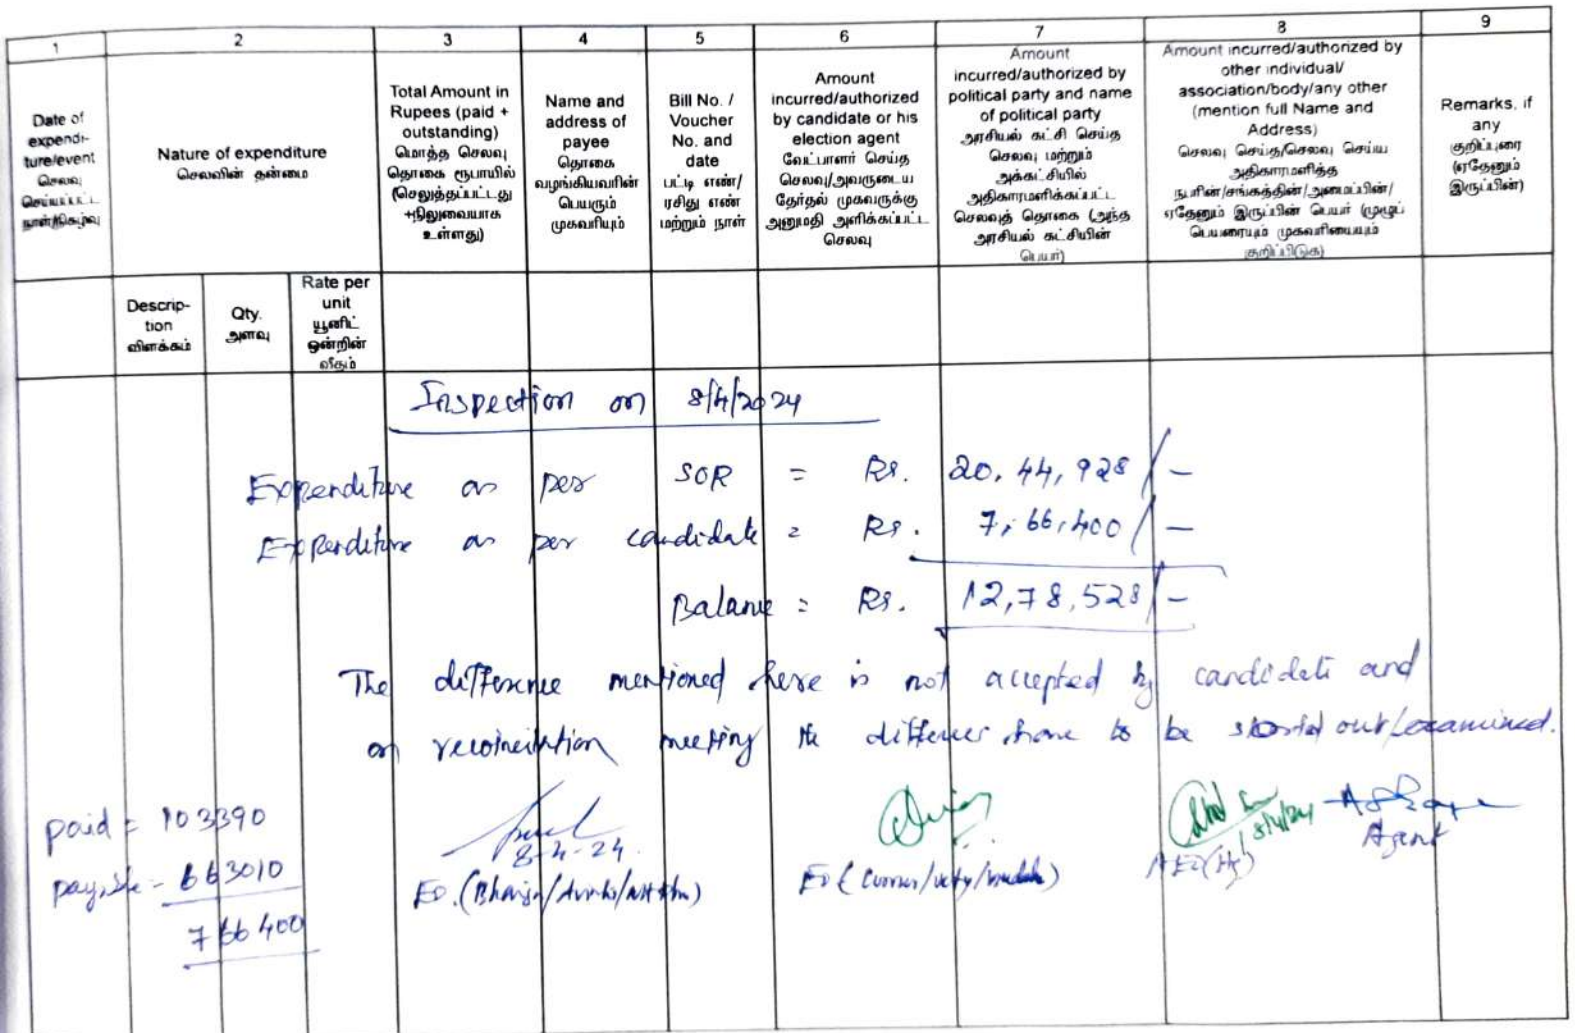 1 2 3 4 5 6 7 8 9
Date of
expendi-
ture/event
செலவு
செய்யப்பட்ட
நாள்/நிகழ்வு
Nature of expenditure
செலவின் தன்மை
Total Amount in
Rupees (paid +
outstanding)
மொத்த செலவு
தொகை ரூபாயில்
(செலுத்தப்பட்டது
+நிலுவையாக
உள்ளது)
Name and
address of
payee
தொகை
வழங்கியவரின்
பெயரும்
முகவரியும்
Bill No. /
Voucher
No. and
date
பட்டி எண்/
ரசிது எண்
மற்றும் நாள்
Amount
incurred/authorized
by candidate or his
election agent
வேட்பாளர் செய்த
செலவு/அவருடைய
தேர்தல் முகவருக்கு
அனுமதி அளிக்கப்பட்ட
செலவு
Amount
incurred/authorized by
political party and name
of political party
அரசியல் கட்சி செய்த
செலவு மற்றும்
அக்கட்சியில்
அதிகாரமளிக்கப்பட்ட
செலவுத் தொகை (அந்த
அரசியல் கட்சியின்
பெயர்)
Amount incurred/authorized by
other individual/
association/body/any other
(mention full Name and
Address)
செலவு செய்த/செலவு செய்ய
அதிகாரமளித்த
நபரின்/சங்கத்தின்/அமைப்பின்/
ஏதேனும் இருப்பின் பெயர் (முழுப்
பெயரையும் முகவரியையும்
குறிப்பிடுக)
Remarks, if
any
குறிப்புரை
(ஏதேனும்
இருப்பின்)
Descrip-
tion
விளக்கம்
Qty.
அளவு
Rate per
unit
யூனிட்
ஒன்றின்
வீதம்
Inspection on 8/4/2024
Expenditure as per SOR = Rs. 20,44,928/-
Expenditure as per candidate = Rs. 7,66,400/-
Balance = Rs. 12,78,528/-
The difference mentioned here is not accepted by candidate and
on reconciliation meeting the differences have to be sorted out/examined.
paid = 103390
payable - 663010
766400
8-4-24
EO. (
EO (
8/4/24
Agent